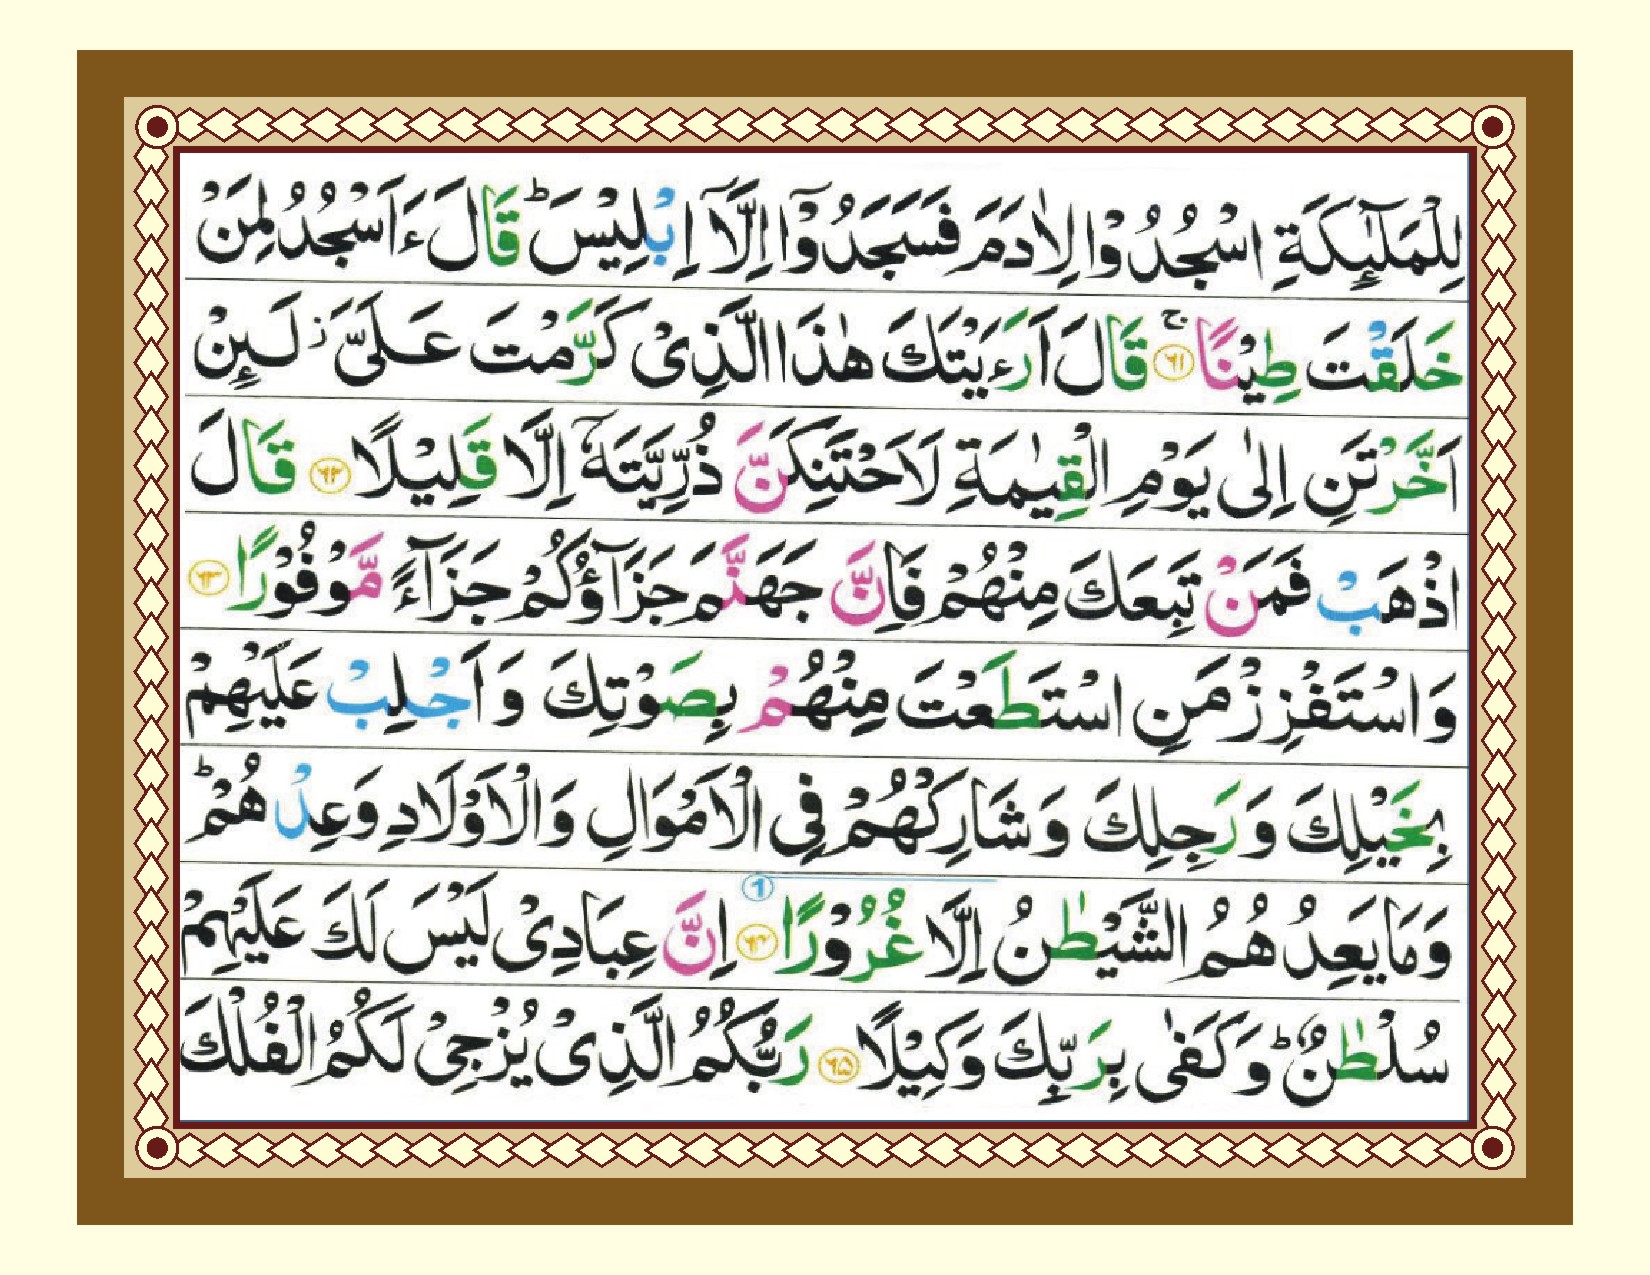 لِلْمَلٰٓئِكَةِ اسْجُدُوْا لِاٰدَمَ فَسَجَدُوْٓا اِلَّاۤ اِبْلِيْسَ ؕ قَالَ ءَاَسْجُدُ لِمَنْ
خَلَقْتَ طِيْنًا ۚ ﴿۶۱﴾ قَالَ اَرَءَيْتَكَ هٰذَا الَّذِىْ كَرَّمْتَ عَلَىَّ ۡ لَئِنْ
اَخَّرْتَنِ اِلٰى يَوْمِ الْقِيٰمَةِ لَاَحْتَنِكَنَّ ذُرِّيَّتَهٗۤ اِلَّا قَلِيْلًا ﴿۶۲﴾ قَالَ
اذْهَبْ فَمَنْ تَبِعَكَ مِنْهُمْ فَاِنَّ جَهَنَّمَ جَزَآؤُكُمْ جَزَآءً مَّوْفُوْرًا ﴿۶۳﴾
وَاسْتَفْزِزْ مَنِ اسْتَطَعْتَ مِنْهُمْ بِصَوْتِكَ وَاَجْلِبْ عَلَيْهِمْ
بِخَيْلِكَ وَرَجِلِكَ وَشَارِكْهُمْ فِى الْاَمْوَالِ وَالْاَوْلَادِ وَعِدْهُمْ ؕ
وَمَا يَعِدُهُمُ الشَّيْطٰنُ اِلَّا غُرُوْرًا ﴿۶۴﴾ ① اِنَّ عِبَادِىْ لَيْسَ لَكَ عَلَيْهِمْ
سُلْطٰنٌ ؕ وَكَفٰى بِرَبِّكَ وَكِيْلًا ﴿۶۵﴾ رَبُّكُمُ الَّذِىْ يُزْجِىْ لَكُمُ الْفُلْكَ